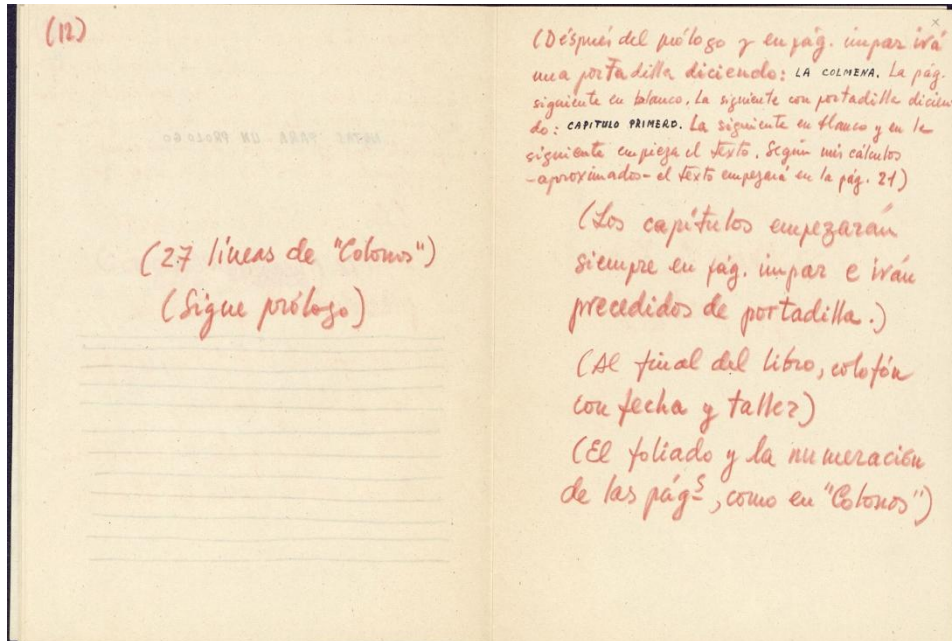 (12)
(27 líneas de "Colonos")
(Sigue prólogo)
(Después del prólogo y en pág. impar irá
una portadilla diciendo: LA COLMENA. La pág.
siguiente en blanco. La siguiente con portadilla dicien
do: CAPITULO PRIMERO. La siguiente en blanco y en la
siguiente empieza el texto. Según mis cálculos
-aproximados- el texto empezará en la pág. 21)
(Los capítulos empezarán
siempre en pág. impar e irán
precedidos de portadilla.)
(Al final del libro, colofón
con fecha y taller)
(El foliado y la numeración
de las págs, como en "Colonos")